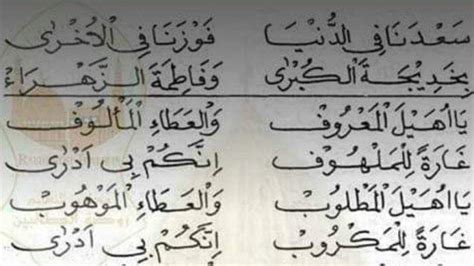 سَعَدْنَا فِي الدُّنْيَا فَوْزَنَا فِي الْأُخْرٰى
بِخَدِيْجَةَ الْكُبْرٰى وَفَاطِمَةَ الزَّهْرَاءْ
يَا اُهَيْلَ الْمَعْرُوْفْ وَالْعَطَاءِ الْمَأْلُوْفْ
غَارَةً لِلْمَلْهُوْفْ اِنَّكُمْ بِي اَدْرٰى
يَا اُهَيْلَ الْمَطْلُوْبْ وَالْعَطَاءِ الْمَوْهُوْبْ
غَارَةً لِلْمَكْرُوْبْ اِنَّكُمْ بِي اَدْرٰى